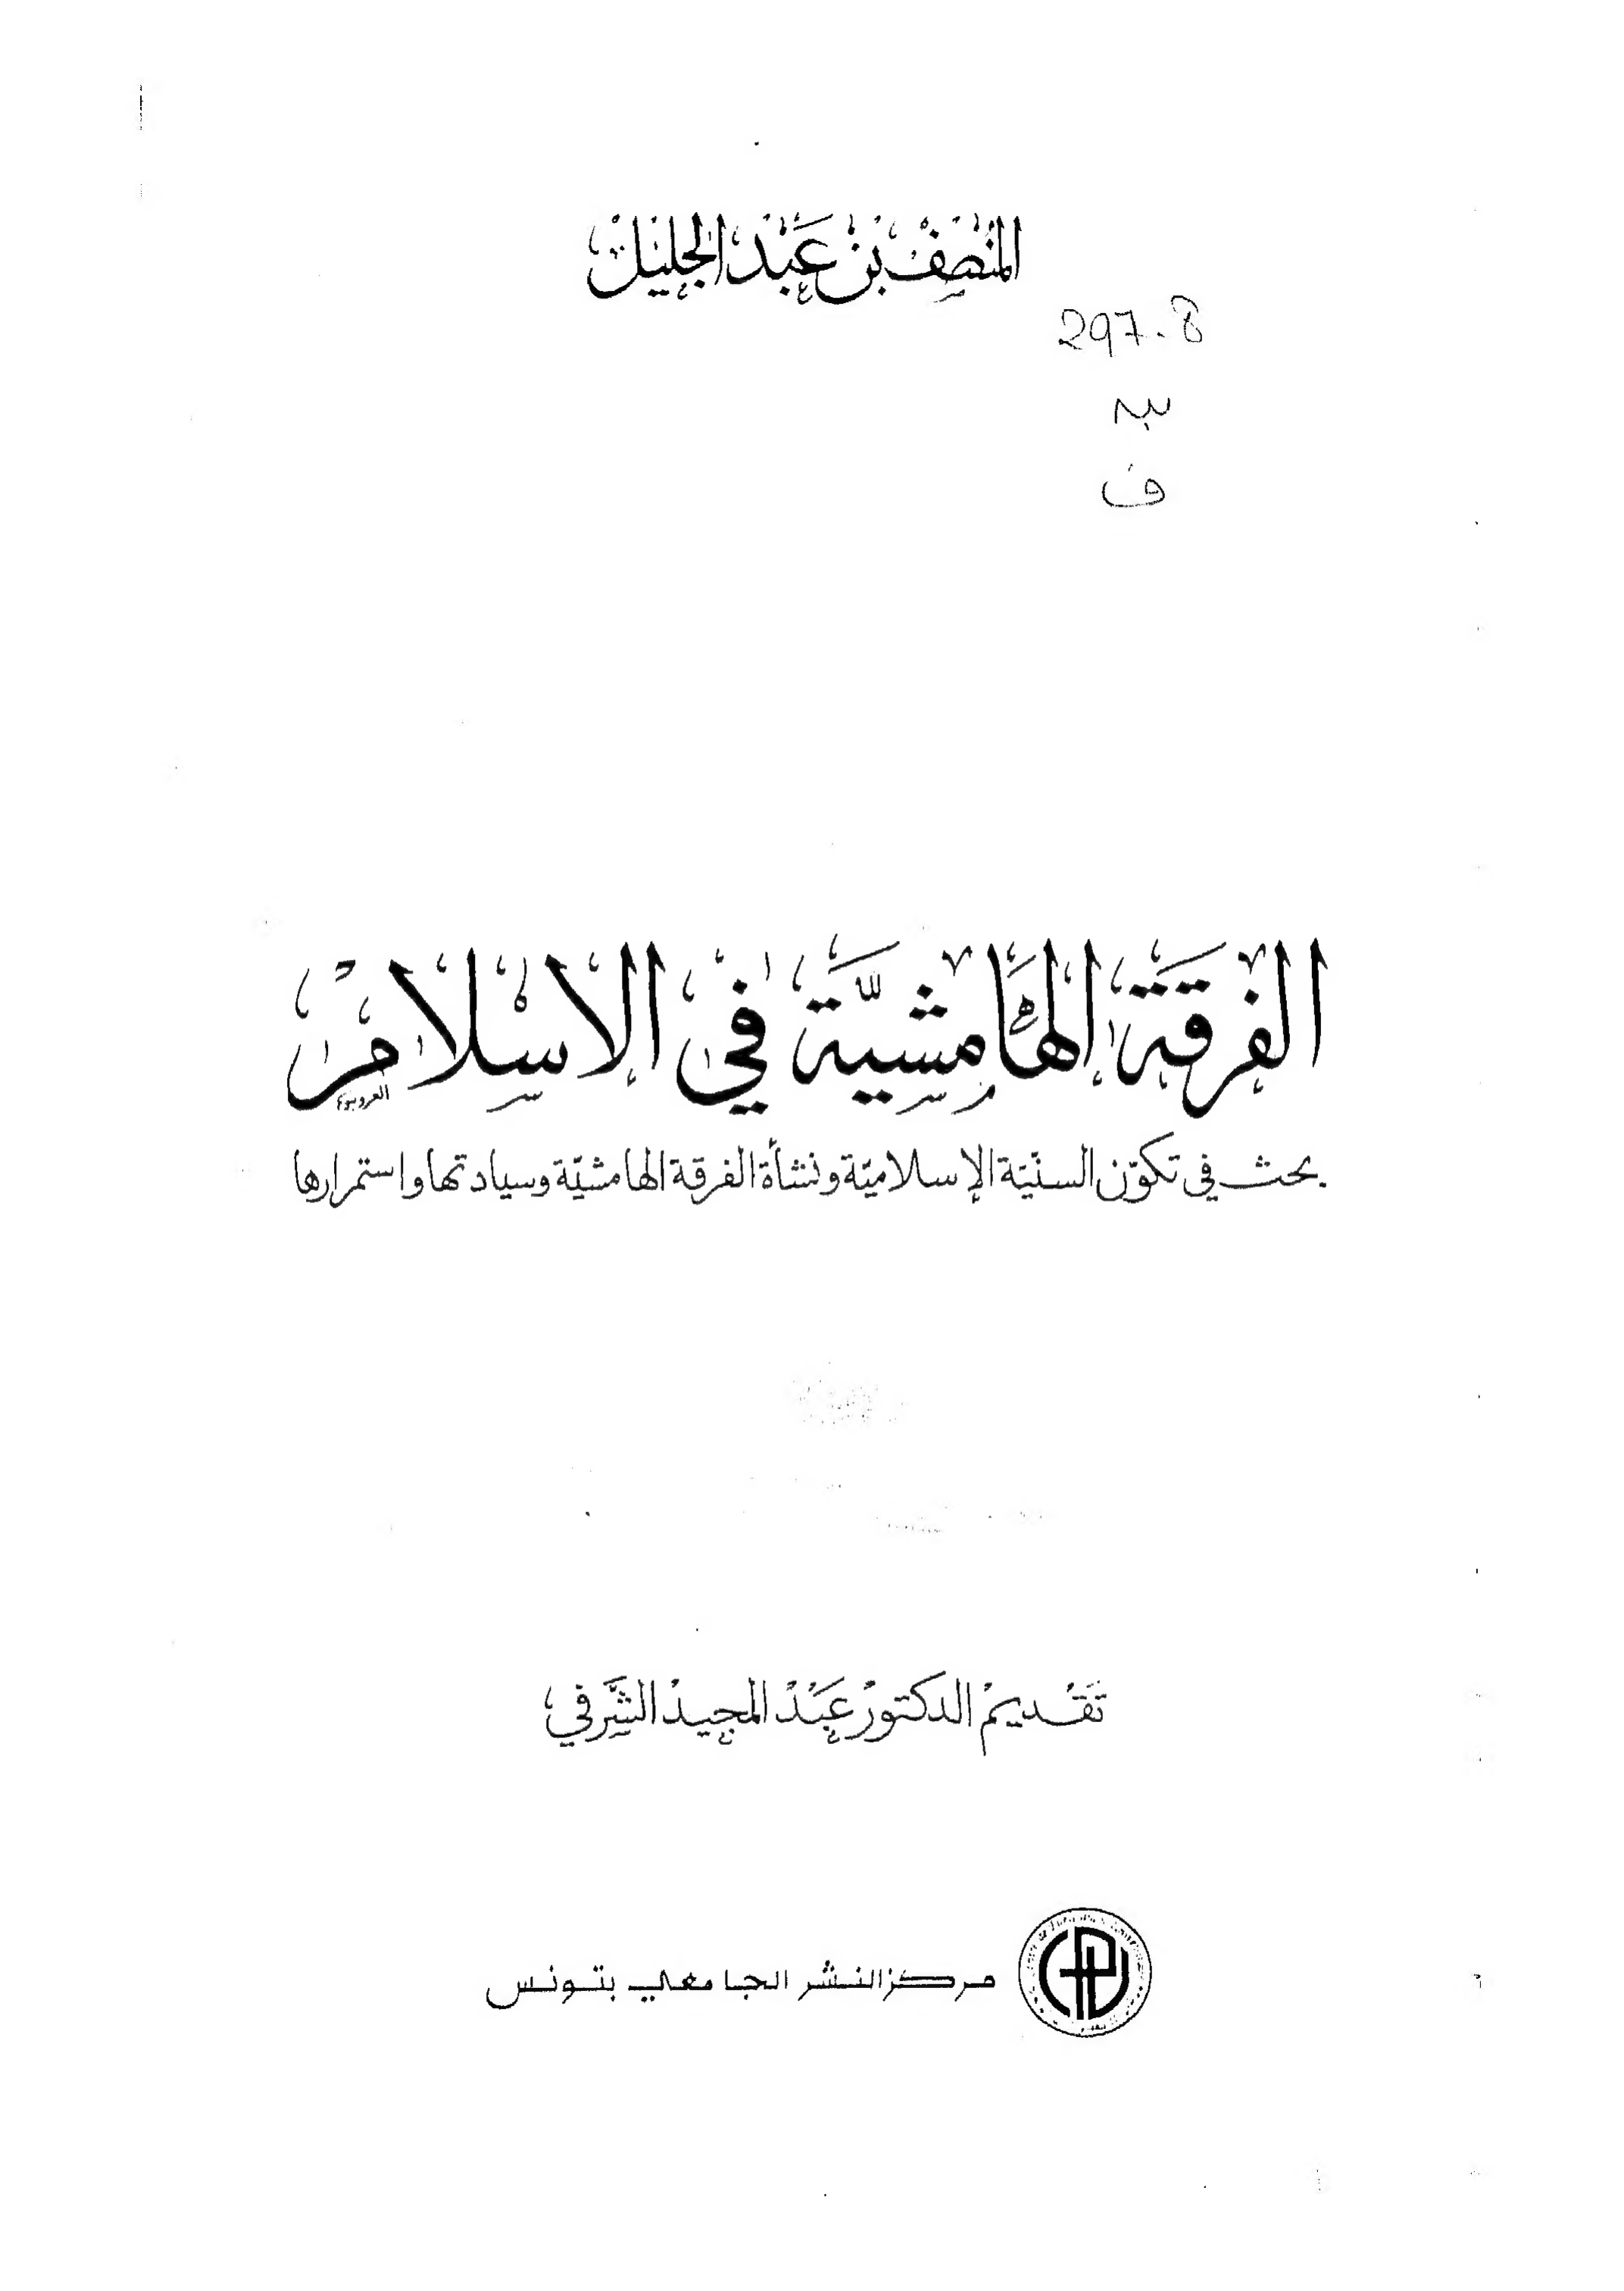 المنصف بن عبد الجليل
297.8
ف
الفرقة الهامشيّة في الإسلام
بحث في تكوّن السنيّة الإسلاميّة ونشأة الفرقة الهامشيّة وسيادتها واستمرارها
تقديم الدكتور عبد المجيد الشرفي
مركز النشر الجامعي بتونس